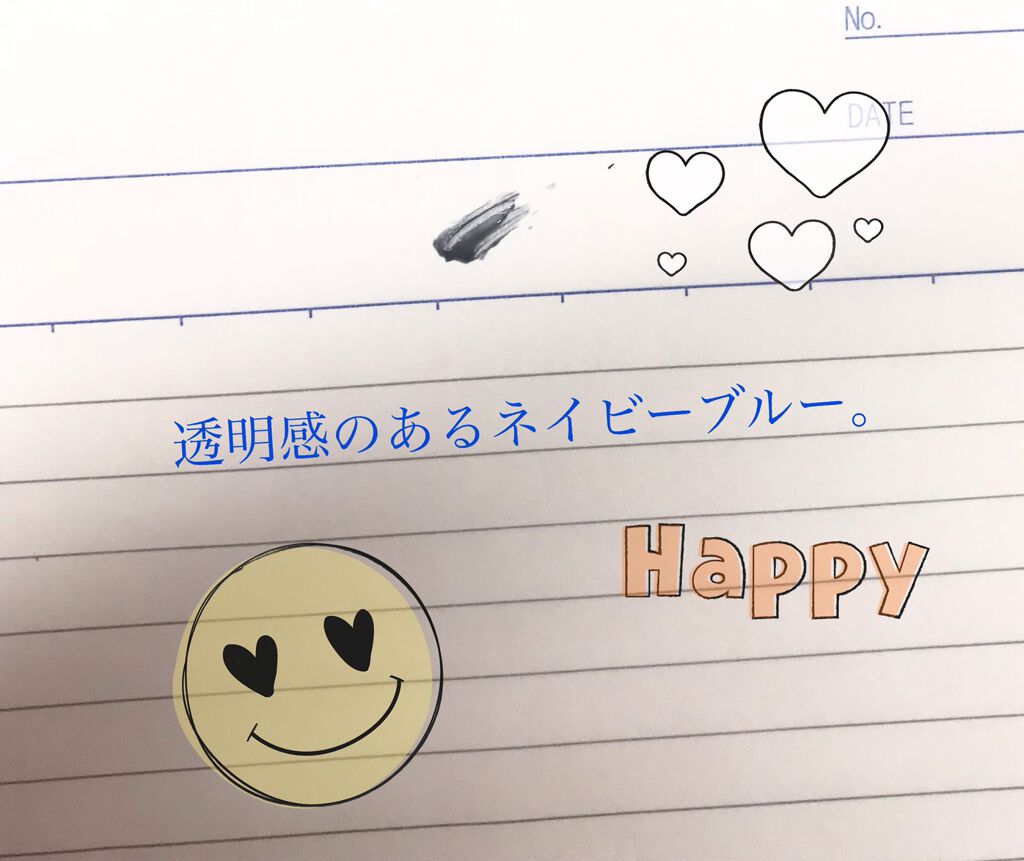 No.
DATE
透明感のあるネイビーブルー。
Happy